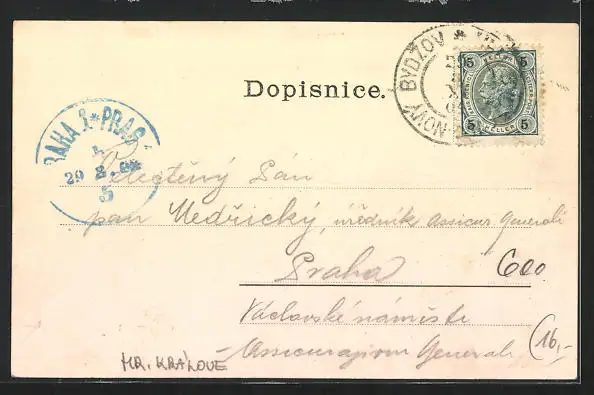 Dopisnice.
NOVÝ BYDŽOV *
5 HELLER 5
5 HELLER 5
PRAHA 1 * PRAG
29
5
Pán
pan Nedřický, úředník Assicur Generali
Praha
600
Václavské náměstí
Assicurazioni Generali
16,-
HR. KRÁLOVÉ